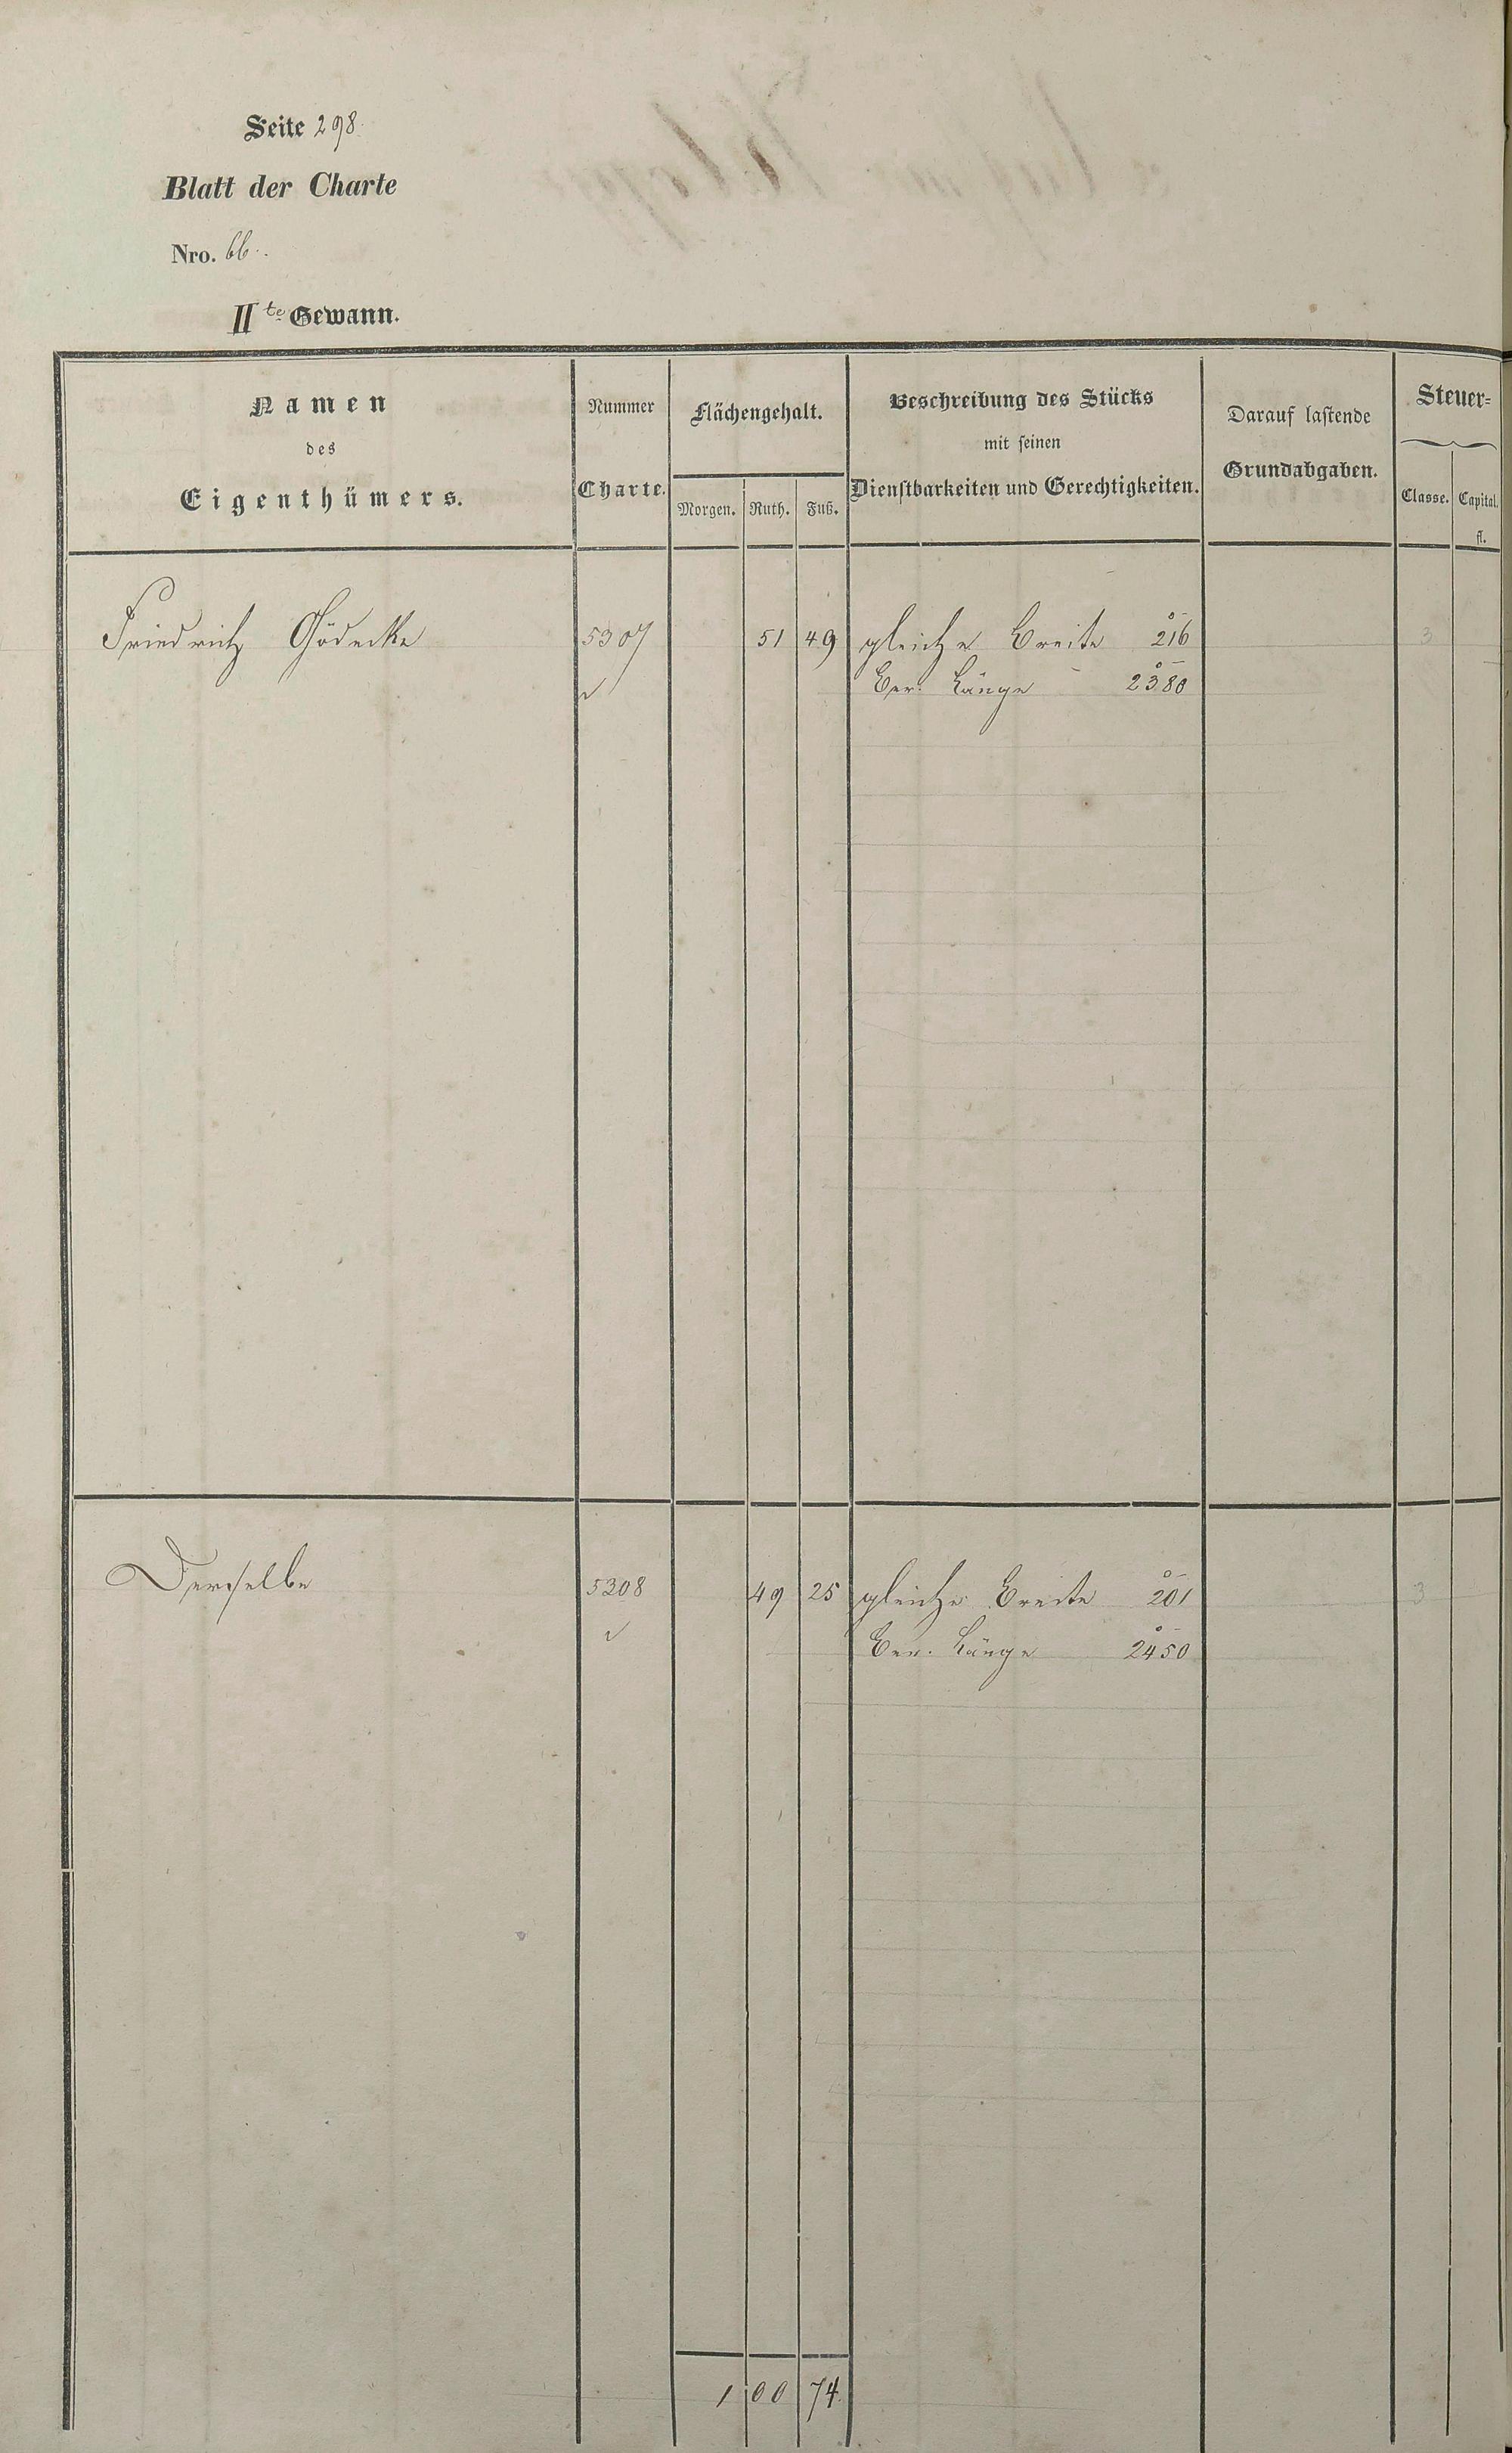 Seite 298.
Blatt der Charte
Nro. 66.
II te Gewann.
Namen
des
Eigenthümers.
Nummer
Charte.
Flächengehalt.
Morgen. Ruth. Fuß.
Beschreibung des Stücks
mit seinen
Dienstbarkeiten und Gerechtigkeiten.
Darauf lastende
Grundabgaben.
Steuer=
Classe. Capital.
fl.
Friedrich Gödecke 5307 51 49 gleiche Breite 216 3
Ber. Länge 2380
Derselbe 5308 49 25 gleiche Breite 201 3
Ber. Länge 2450
1 00 74